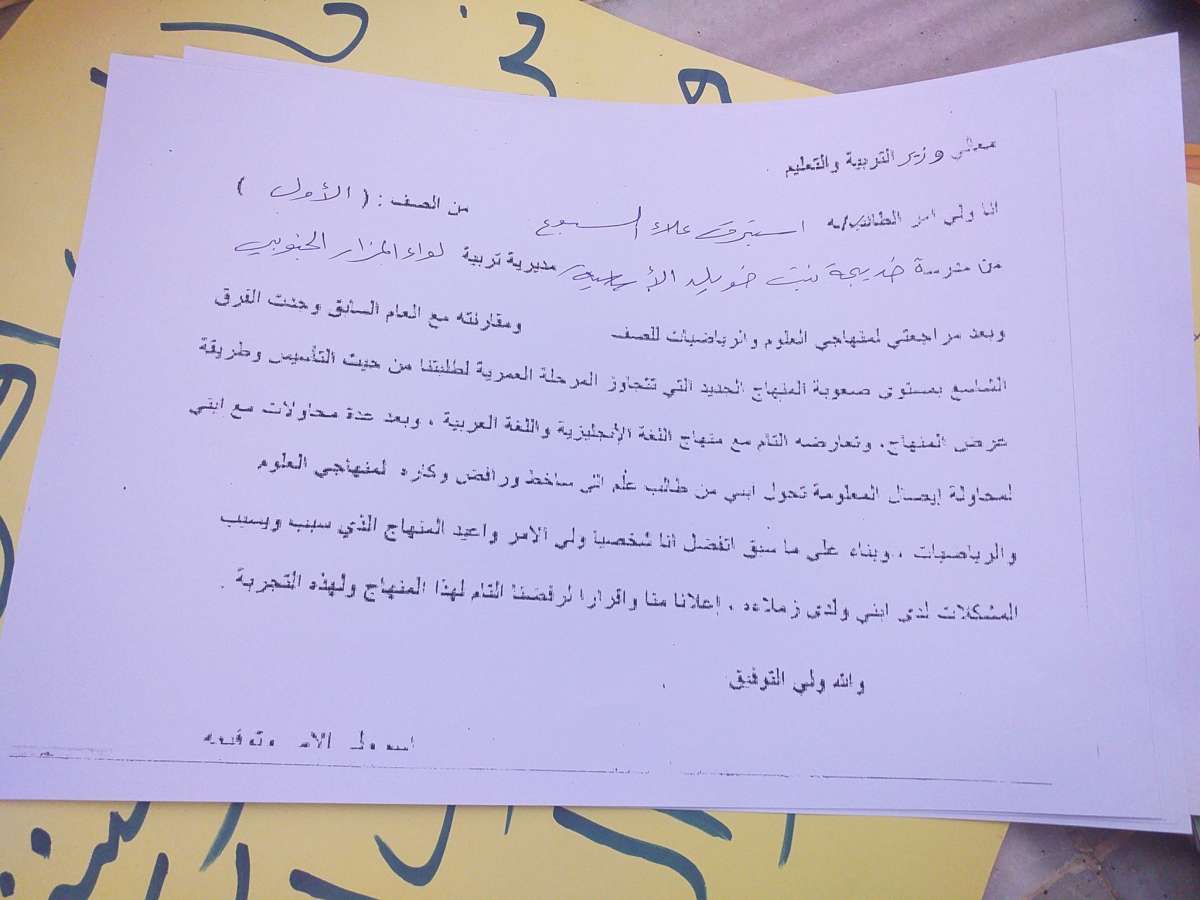 معالي وزير التربية والتعليم
انا ولي امر الطالب/ـه استبرق علاء السبوع من الصف : ( الأول )
من مدرسة خديجة بنت خويلد الأساسية مديرية تربية لواء المزار الجنوبي
وبعد مراجعتي لمنهاجي العلوم والرياضيات للصف ومقارنته مع العام السابق وجدت الفرق
الشاسع بمستوى صعوبة المنهاج الجديد التي تتجاوز المرحلة العمرية لطلبتنا من حيث التأسيس وطريقة
عرض المنهاج، وتعارضه التام مع منهاج اللغة الإنجليزية واللغة العربية ، وبعد عدة محاولات مع ابني
لمحاولة إيصال المعلومة تحول ابني من طالب علم الى ساخط ورافض وكاره لمنهاجي العلوم
والرياضيات ، وبناء على ما سبق اتفضل انا شخصيا ولي الامر واعيد المنهاج الذي سبب ويسبب
المشكلات لدى ابني ولدى زملاءه ، إعلانا منا واقرارا لرفضنا التام لهذا المنهاج ولهذه التجربة .
والله ولي التوفيق
اسم ولي الامر وتوقيعه